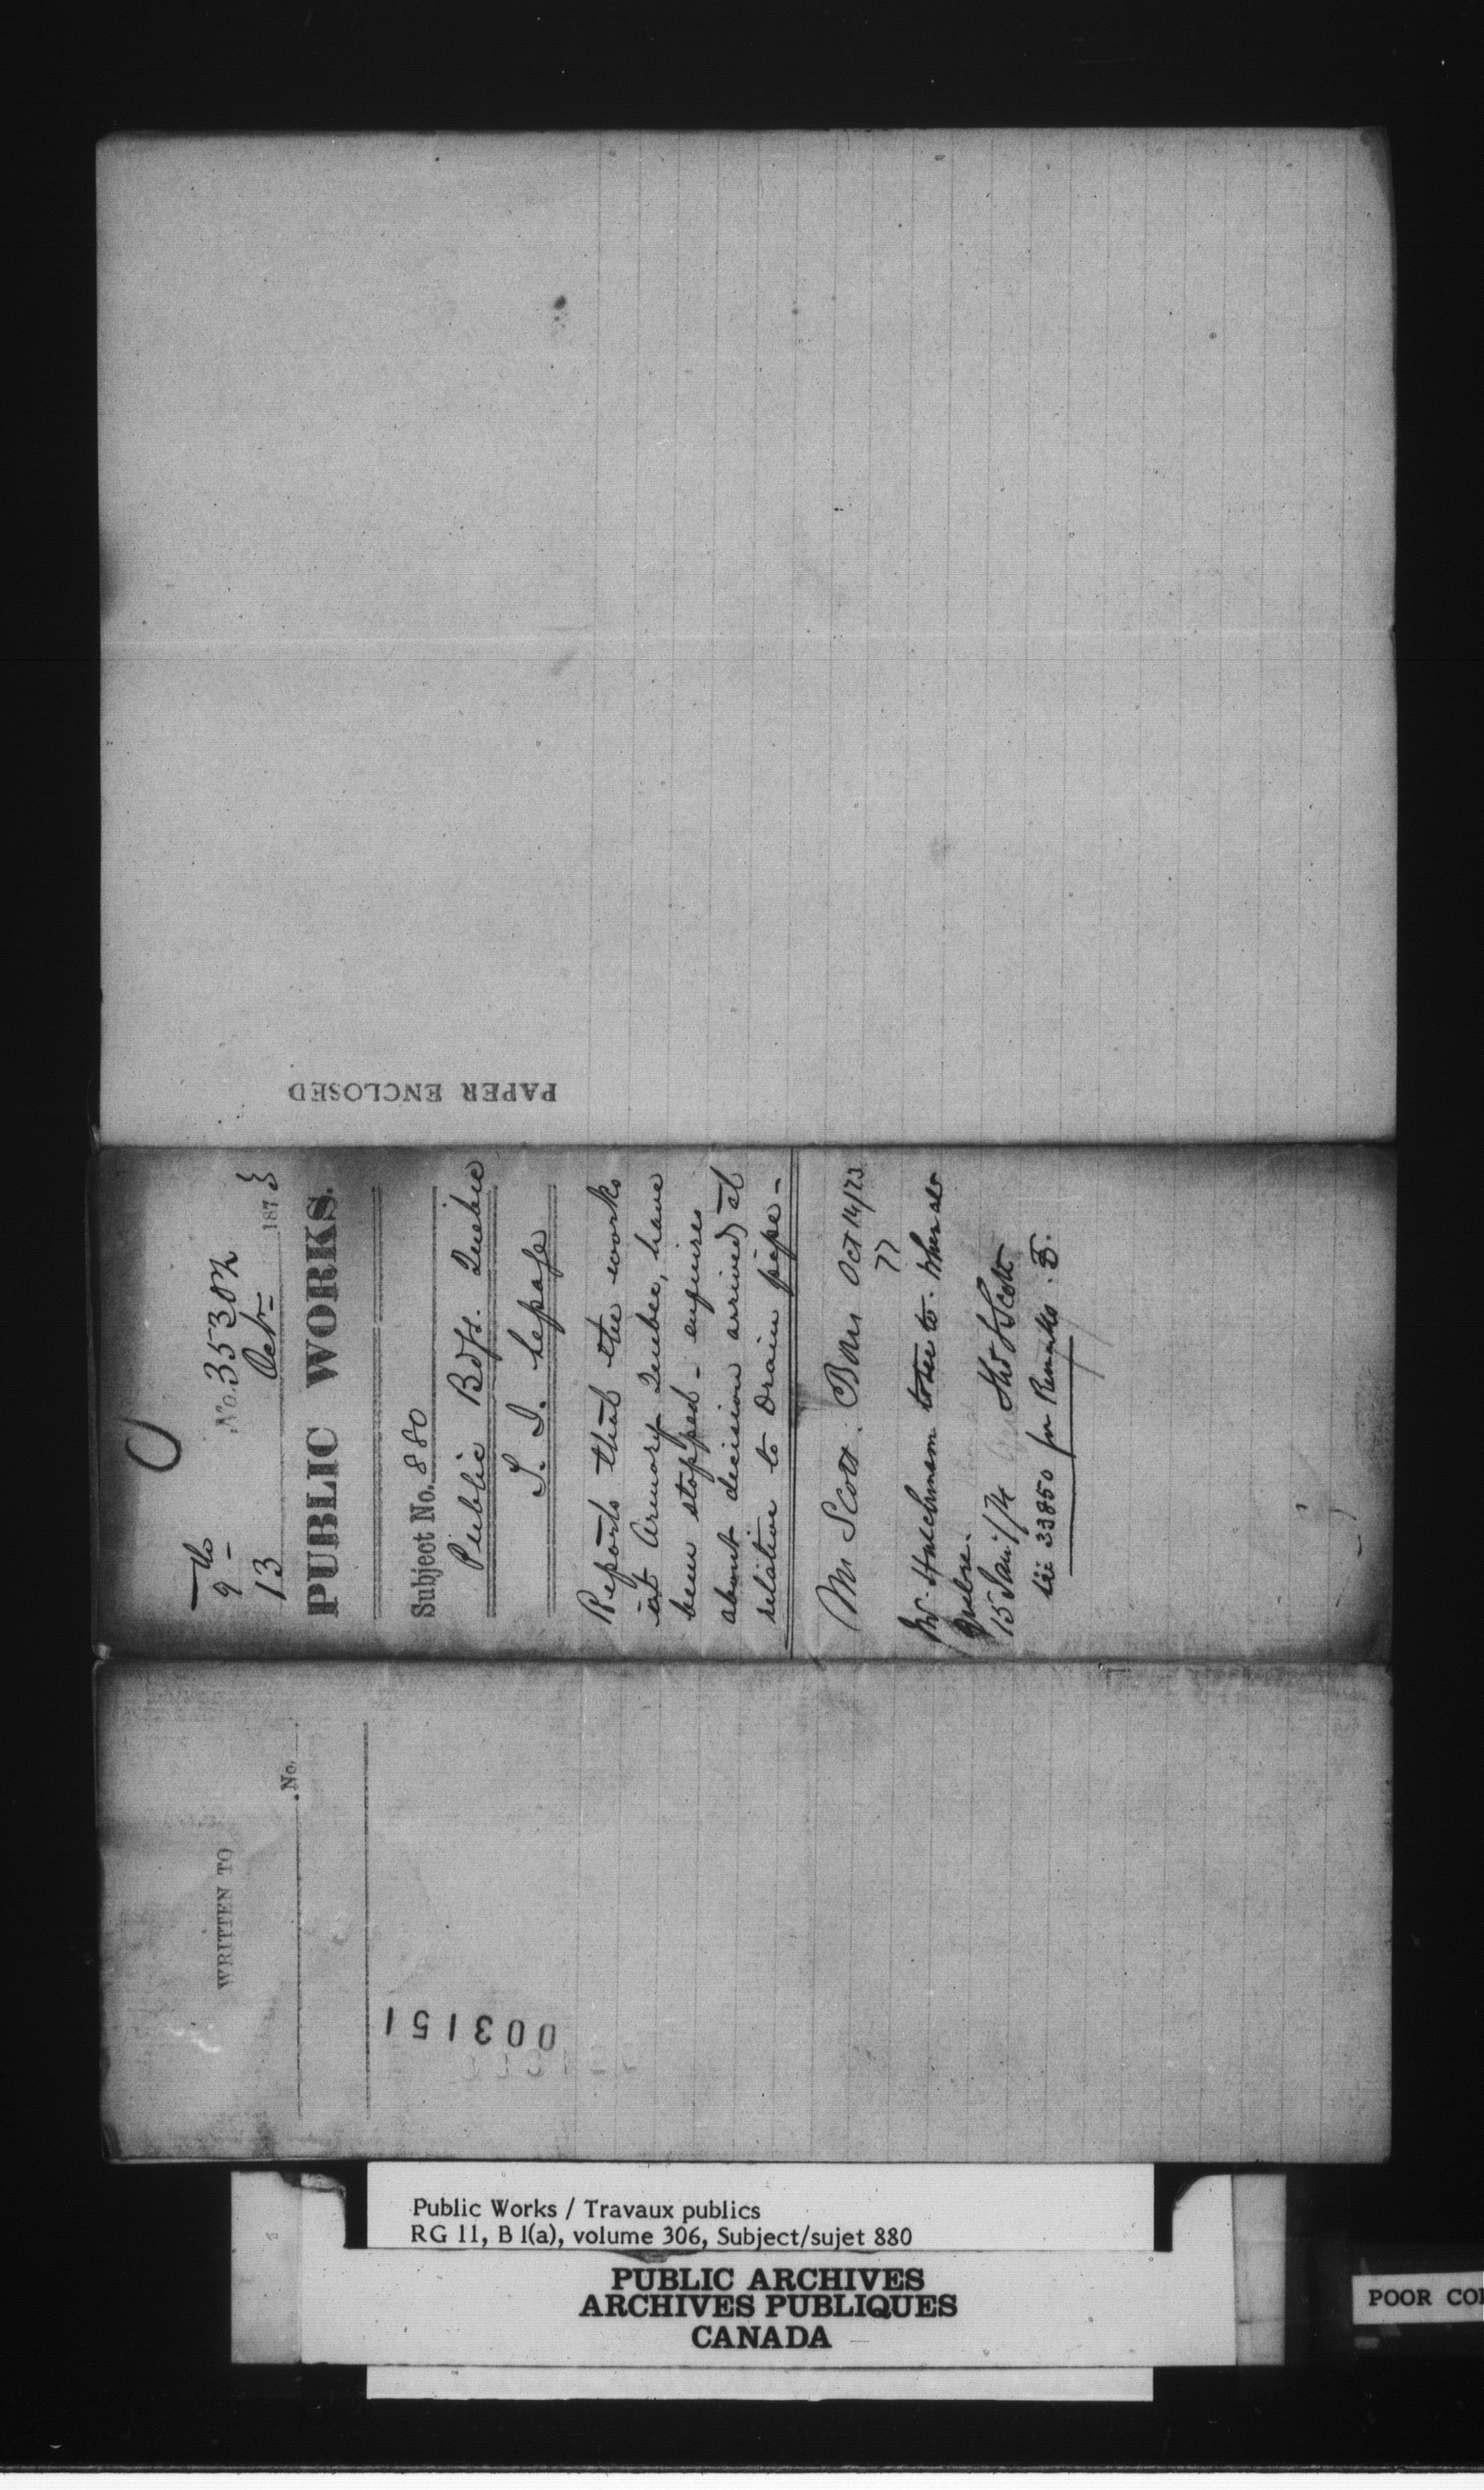 9th No. 35302
13 Octr 1873
PUBLIC WORKS.
Subject No. 880
Public Bdgs. Quebec
Lepage
Reports that the works
at Armory Quebec, have
been stopped - enquires
about decision arrived at
relative to Drain pipe -
Mr Scott. Oct 14/73
Mr Hutchison to see to. When at
Quebec.
15 Jan'/74 Thos S Scott
See 33850 for Remarks.
PAPER ENCLOSED
WRITTEN TO
No.
003151
Public Works / Travaux publics
RG 11, B 1(a), volume 306, Subject/sujet 880
PUBLIC ARCHIVES
ARCHIVES PUBLIQUES
CANADA
POOR